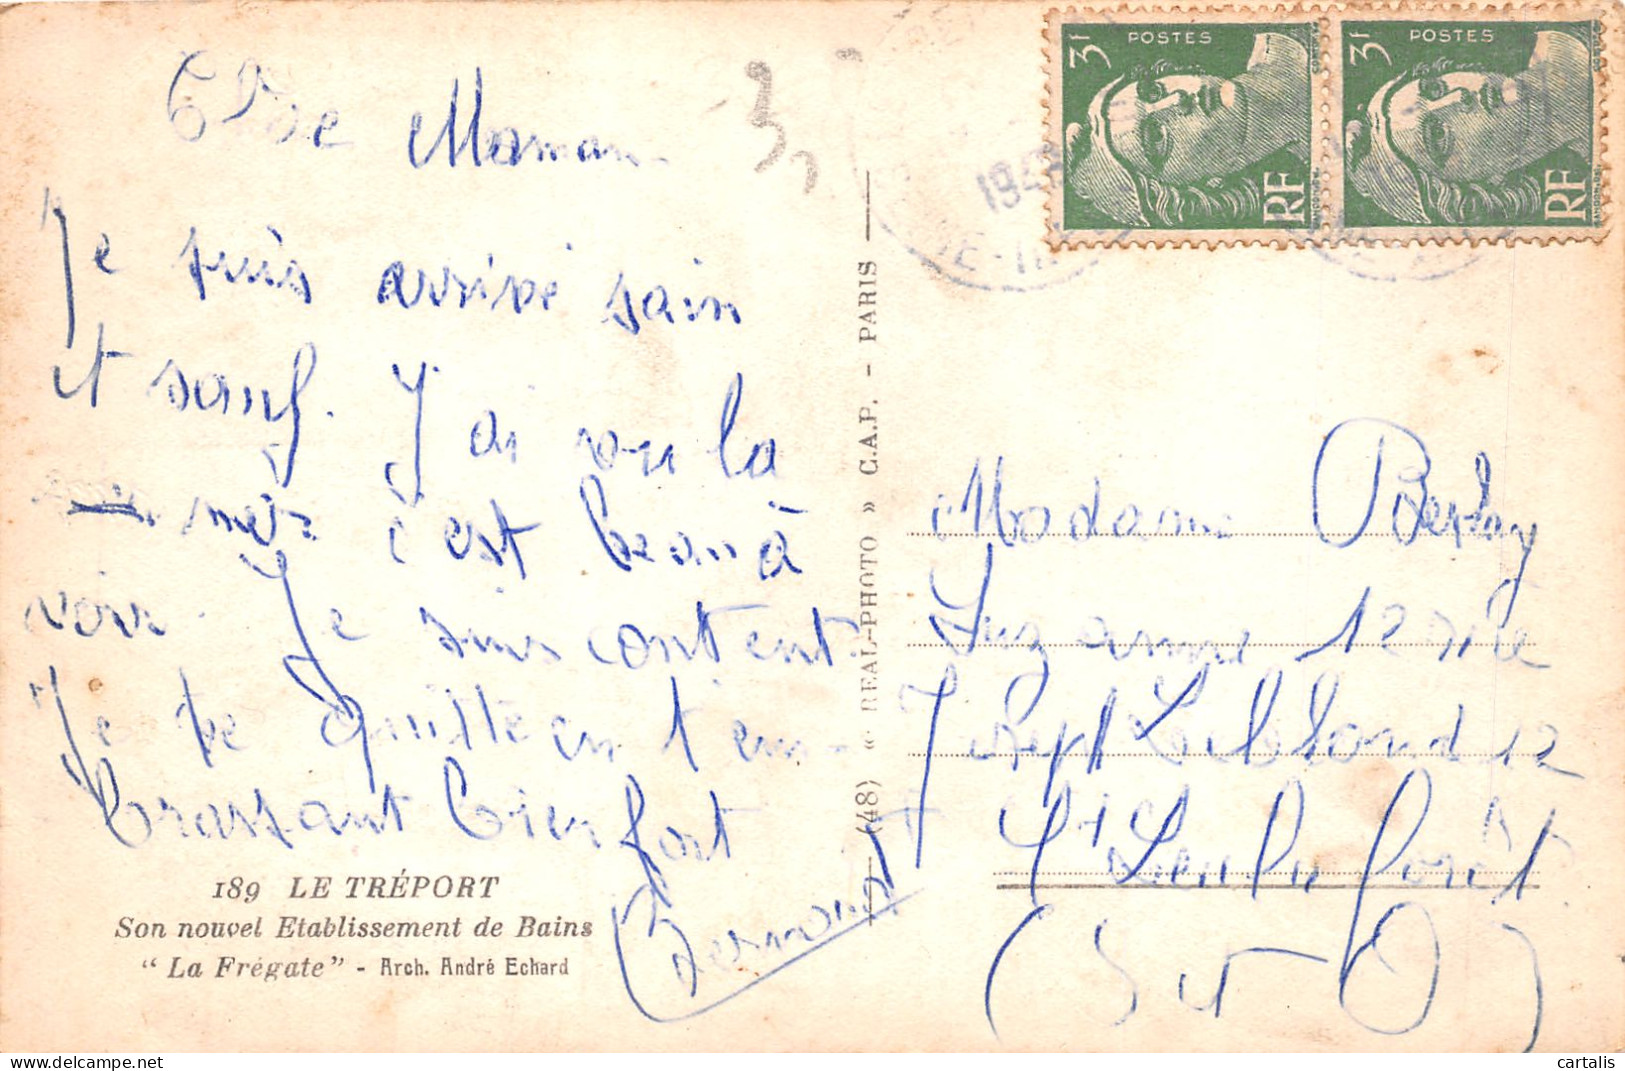 Maman
3
Je suis arrivé sain
et sauf. J'ai vu la
mer c'est beau à
voir. Je suis content.
Je te quitte en t'em-
brassant bien fort
Bernard
189 LE TRÉPORT
Son nouvel Etablissement de Bains
“ La Frégate ” - Arch. André Echard
(48) « REAL-PHOTO » C.A.P. - PARIS
3F POSTES RF
3F POSTES RF
Madame
Suzanne 12 rue
Joseph Leblond 12
St Leu la forêt
(S et O)
cartalis